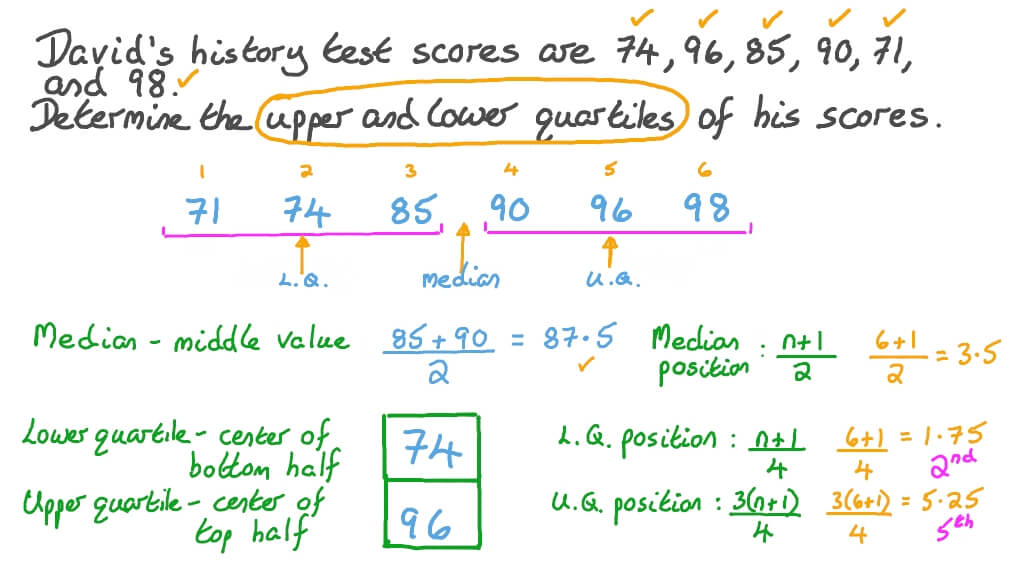 David's history test scores are 74, 96, 85, 90, 71,
and 98.
Determine the upper and lower quartiles of his scores.
1 2 3 4 5 6
71 74 85 90 96 98
L.Q. median U.Q.
Median - middle value 85 + 90 / 2 = 87.5 Median position : n+1 / 2 6+1 / 2 = 3.5
Lower quartile - center of
bottom half 74 L.Q. position : n+1 / 4 6+1 / 4 = 1.75 2nd
Upper quartile - center of
top half 96 U.Q. position : 3(n+1) / 4 3(6+1) / 4 = 5.25 5th